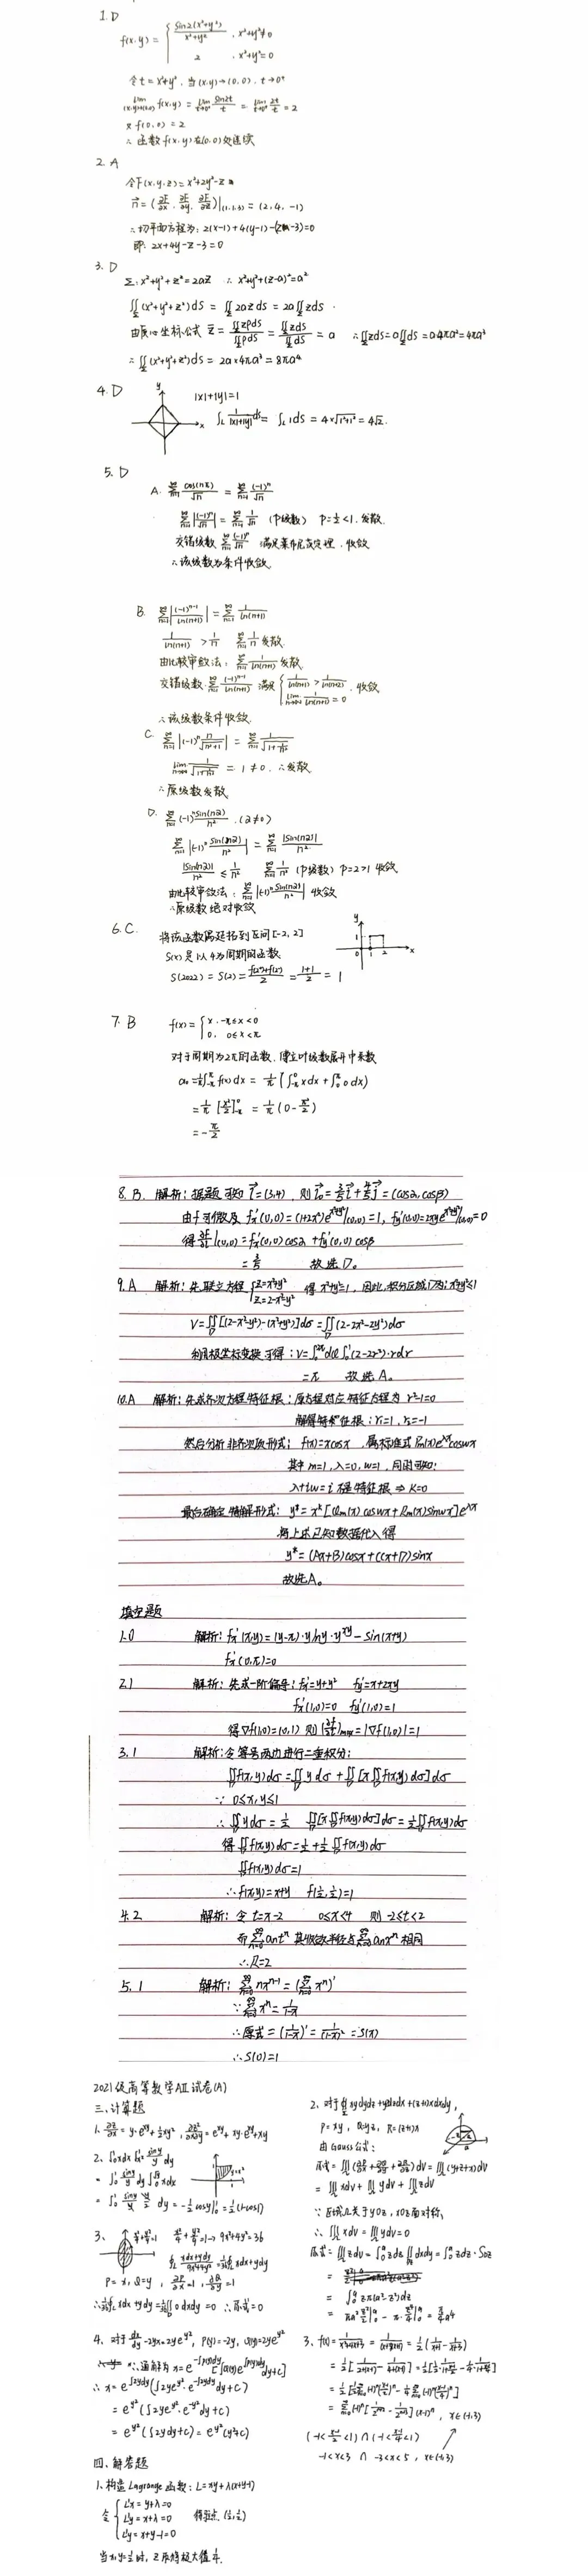 1. D
f(x,y) = { sin2(x²+y²)/(x²+y²) , x²+y²≠0
2 , x²+y²=0
令t=x²+y², 当(x,y)→(0,0), t→0⁺
lim(x,y)→(0,0) f(x,y) = lim t→0⁺ sin2t/t = lim t→0⁺ 2t/t = 2
又f(0,0)=2
∴ 函数f(x,y)在(0,0)处连续
2. A
令F(x,y,z)=x²+2y²-z
n⃗=(∂F/∂x, ∂F/∂y, ∂F/∂z)|(1,1,3) = (2,4,-1)
∴切平面方程为: 2(x-1)+4(y-1)-(z-3)=0
即: 2x+4y-z-3=0
3. D
Σ: x²+y²+z²=2az ∴ x²+y²+(z-a)²=a²
∬Σ(x²+y²+z²)dS = ∬Σ 2az dS = 2a∬Σ zdS
由质心坐标公式 z̄ = ∬Σ zρdS / ∬Σ ρdS = ∬Σ zdS / ∬Σ dS = a ∴∬Σ zdS=a∬Σ dS=a·4πa²=4πa³
∴ ∬Σ(x²+y²+z²)dS = 2a×4πa³=8πa⁴
4. D
y
x
|x|+|y|=1
∫L 1/(|x|+|y|) ds = ∫L 1ds = 4×√(1²+1²) = 4√2.
5. D
A. ∑n=1∞ cos(nπ)/√n = ∑n=1∞ (-1)ⁿ/√n
∑n=1∞ |(-1)ⁿ/√n| = ∑n=1∞ 1/√n (P级数) P=1/2<1, 发散.
交错级数 ∑n=1∞ (-1)ⁿ/√n 满足莱布尼茨定理, 收敛
∴该级数为条件收敛.
B. ∑n=1∞ |(-1)ⁿ⁻¹/ln(n+1)| = ∑n=1∞ 1/ln(n+1)
1/ln(n+1) > 1/n ∑n=1∞ 1/n 发散.
由比较审敛法: ∑n=1∞ 1/ln(n+1) 发散.
交错级数 ∑n=1∞ (-1)ⁿ⁻¹/ln(n+1) 满足 { 1/ln(n+1) > 1/ln(n+2) , 收敛
lim n→∞ 1/ln(n+1) = 0
∴该级数条件收敛.
C. ∑n=1∞ |(-1)ⁿ n/√(n²+1)| = ∑n=1∞ 1/√(1+1/n²)
lim n→∞ 1/√(1+1/n²) = 1 ≠ 0, ∴发散
∴原级数发散
D. ∑n=1∞ (-1)ⁿ sin(na)/n² , (a≠0)
∑n=1∞ |(-1)ⁿ sin(na)/n²| = ∑n=1∞ |sin(na)|/n²
|sin(na)|/n² ≤ 1/n² ∑n=1∞ 1/n² (P级数) P=2>1 收敛
由比较审敛法: ∑n=1∞ |(-1)ⁿ sin(na)/n²| 收敛
∴原级数绝对收敛
6. C. 将该函数偶延拓到区间[-2,2]
S(x)是以4为周期的函数
S(2022) = S(2) = (f(2⁻)+f(2⁺))/2 = (1+1)/2 = 1
y
1
0 1 2 x
7. B f(x) = { x, -π≤x<0
0, 0≤x<π
对于周期为2π的函数, 傅立叶级数展开中系数
a₀=1/π∫-π^π f(x)dx = 1/π [∫-π^0 xdx + ∫0^π 0dx)
= 1/π [x²/2]-π^0 = 1/π (0-π²/2)
= -π/2
8. B. 解析: 据题可知 l⃗=(3,4), 则 l⃗₀=3/5 i⃗+4/5 j⃗=(cosα,cosβ)
由f可微及 fx'(0,0)=(1+2x²)e^(x²+y²)|(0,0)=1, fy'(0,0)=2xye^(x²+y²)|(0,0)=0
得∂f/∂l|(0,0)=fx'(0,0)cosα+fy'(0,0)cosβ
=3/5 故选D。
9. A 解析: 先联立方程 { z=x²+y² 得 x²+y²=1, 因此, 积分区域D为: x²+y²≤1
z=2-x²-y²
V=∬D[(2-x²-y²)-(x²+y²)]dσ=∬D(2-2x²-2y²)dσ
利用极坐标变换可得: V=∫0^2π dθ∫0^1(2-2r²)·rdr
=π 故选A。
10. A 解析: 先求齐次方程特征根: 原方程对应特征方程为 r²-1=0
解得特征根: r₁=1, r₂=-1
然后分析非齐次项形式: f(x)=xcosx, 属标准式 Pm(x)e^λx coswx
其中 m=1, λ=0, w=1, 同时可知:
λ+iw=i 不是特征根 ⇒ k=0
最后确定特解形式: y*=x^k[Qm(x)coswx+Rm(x)sinwx]e^λx
将上述已知数据代入得
y*=(Ax+B)cosx+(Cx+D)sinx
故选A。
填空题
1. 0 解析: fx'(x,y)=(y-π)·y lny·y^xy-sin(x+y)
fx'(0,π)=0
2. 1 解析: 先求一阶偏导: fx'=y+y² fy'=x+2xy
fx'(1,0)=0 fy'(1,0)=1
得∇f(1,0)=(0,1) 则 (∂f/∂l)max=|∇f(1,0)|=1
3. 1 解析: 令等号两边进行二重积分:
∬D f(x,y)dσ=∬D ydσ+∬D[x∬D f(x,y)dσ]dσ
∵ 0≤x,y≤1
∴∬D ydσ=1/2 ∬D[x∬D f(x,y)dσ]dσ=1/2∬D f(x,y)dσ
得∬D f(x,y)dσ=1/2+1/2∬D f(x,y)dσ
∬D f(x,y)dσ=1
∴f(x,y)=x+y f(1/2,1/2)=1
4. 2 解析: 令t=x-2 0≤x<4 则 -2≤t<2
而∑n=0∞ antⁿ 其收敛半径与∑n=0∞ anxⁿ 相同
∴R=2
5. 1 解析: ∑n=0∞ nxⁿ⁻¹=(∑n=0∞ xⁿ)'
∵∑n=0∞ xⁿ=1/(1-x)
∴原式=(1/(1-x))'=1/(1-x)²=S(x)
∴S(0)=1
2021级高等数学AII试卷(A)
三、计算题
1. ∂z/∂x=y·e^xy+½xy², ∂²z/∂x∂y=e^xy+xy·e^xy+xy
2. ∫0^1 xdx∫ siny/y dy
=∫0^1 siny/y dy∫0^√y xdx
=∫0^1 siny/y · y/2 dy=-½cosy|0^1=½(1-cos1)
3、 x²/4+y²/9=1→9x²+4y²=36
∮L (xdx+ydy)/(9x²+4y²)=1/36∮L xdx+ydy
P=x, Q=y,
∴1/36∮L xdx+ydy=1/36∬D 0dxdy=0 ∴原式=0
4、对于dx/dy-2yx=2ye^y², P(y)=-2y, Q(y)=2ye^y²
∴通解为x=e^-∫p(y)dy[∫Q(y)e^∫p(y)dy dy+C]
∴x=e^∫2ydy(∫2ye^y²·e^-∫2ydy dy+C)
=e^y²(∫2ye^y²·e^-y²dy+C)
=e^y²(∫2ydy+C)=e^y²(y²+C)
四、解答题
1、构造Lagrange函数: L=xy+λ(x+y-1)
令 { L'x=y+λ=0
L'y=x+λ=0 得驻点(½,½)
L'y=x+y-1=0
当x,y=½时, z取得极大值¼.
2、对于∯xydydz+yzdzdx+(z+1)xdxdy,
P=xy, Q=yz, R=(z+1)x
由Gauss公式:
原式=∭Ω(∂P/∂x+∂Q/∂y+∂R/∂z)dV=∭Ω(y+z+x)dV
=∭Ωxdv+∭Ωydv+∭Ωzdv
∵区域Ω关于yoz, xoz面对称,
∴∭Ωxdv=∭Ωydv=0
原式=∭Ωzdv=∫0^a zdz∬dxdy=∫0^a zdz·S
=∫0^a zπ(a²-z²)dz
=πa² z²/2|0^a-π·z⁴/4|0^a=π/4 a⁴
3、f(x)=1/(x²+4x+3)=1/((x+1)(x+3))=½(1/(x+1)-1/(x+3))
(-1<(x-1)/2<1)∩(-1<(x-1)/4<1)
-1<x<3 ∩ -3<x<5, x∈(-1,3)